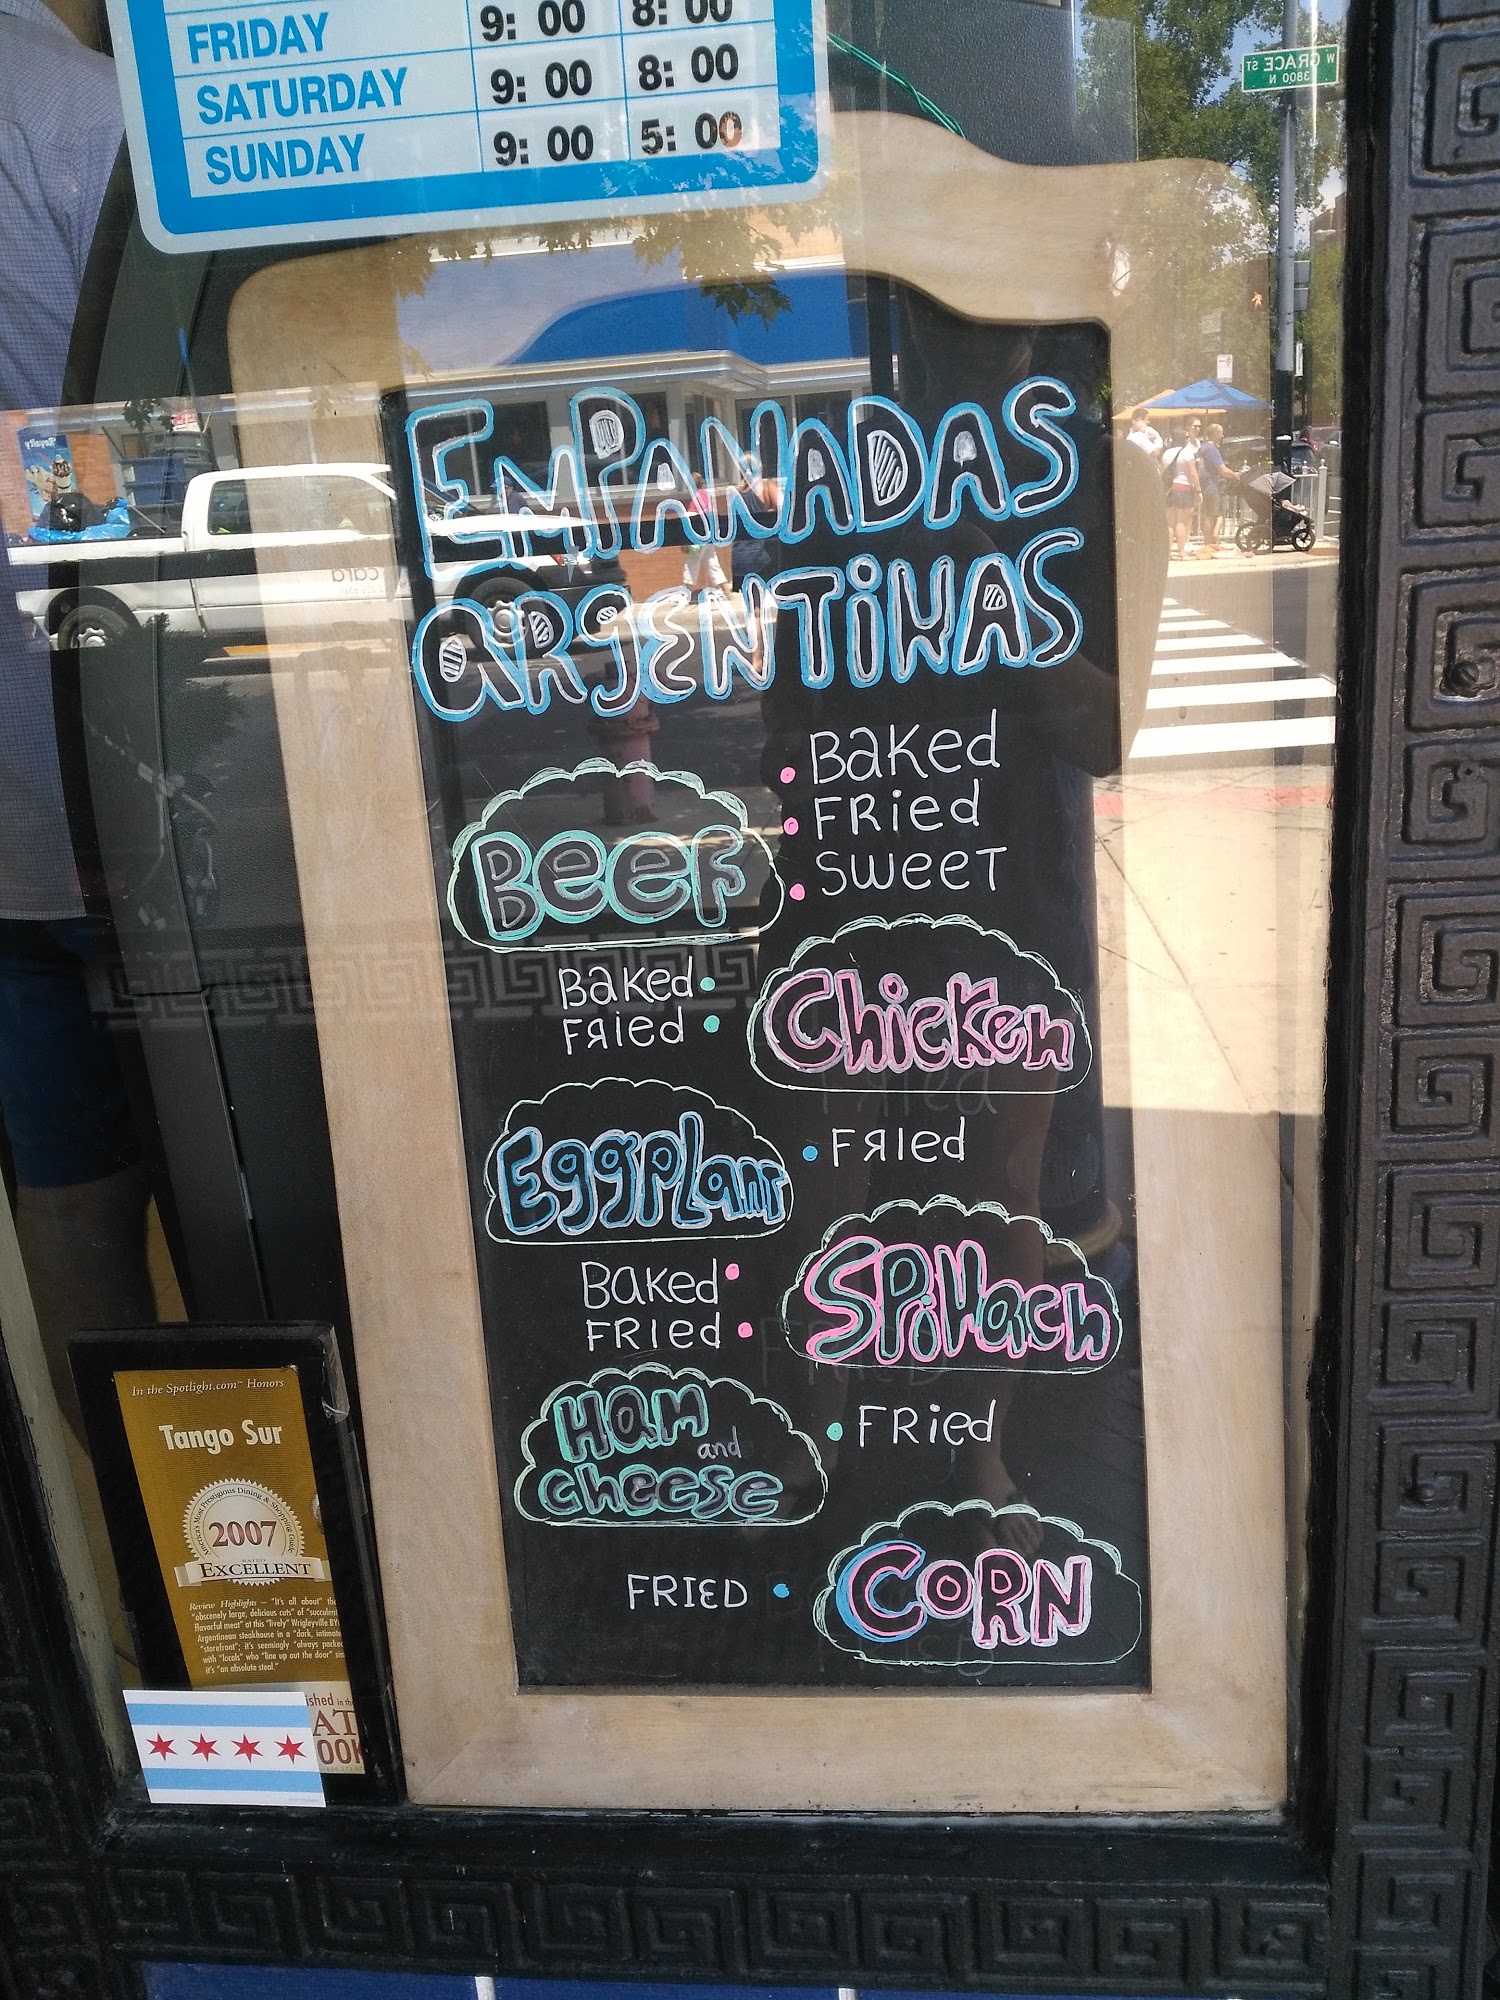 FRIDAY 9:00 8:00
SATURDAY 9:00 8:00
SUNDAY 9:00 5:00
W GRACE ST
3800 N
Royalty
cara
EMPANADAS
ARGENTINAS
Beef
Baked
Fried
Sweet
Baked
Fried
Chicken
Eggplant
Fried
Baked
Fried
Spinach
Ham and
cheese
Fried
FRIED
CORN
In the Spotlight.com™ Honors
Tango Sur
America's Most Prestigious Dining & Shopping Guide
2007
RATED
EXCELLENT
Review Highlights – "It's all about" the
"obscenely large, delicious cuts" of "succulent
flavorful meat" at this "lively" Wrigleyville BY
Argentinean steakhouse in a "dark, intimate
"storefront"; it's seemingly "always packed
with "locals" who "line up out the door" sin
it's "an absolute steal."
ished in the
AT
OOK